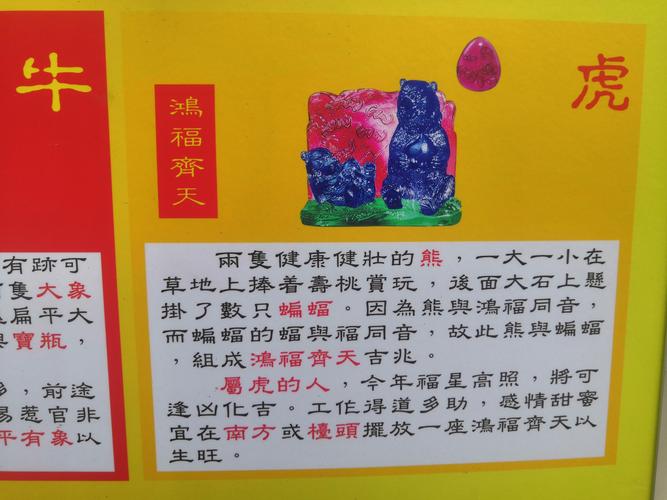 牛
有跡可
隻大象
扁平大
寶瓶，
，前途
惹官非
平有象以
虎
鴻福齊天
兩隻健康健壯的熊，一大一小在
草地上捧着壽桃賞玩，後面大石上懸
掛了數只蝙蝠。因為熊與鴻福同音，
而蝙蝠的蝠與福同音，故此熊與蝙蝠
，組成鴻福齊天吉兆。
屬虎的人，今年福星高照，將可
逢凶化吉。工作得道多助，感情甜蜜
宜在南方或檯頭擺放一座鴻福齊天以
生旺。